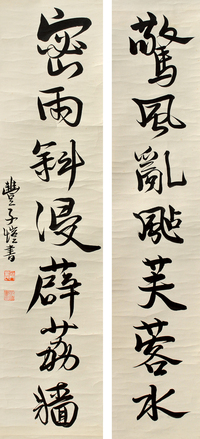 驚風亂颭芙蓉水
密雨斜浸薜荔牆
豐子愷書